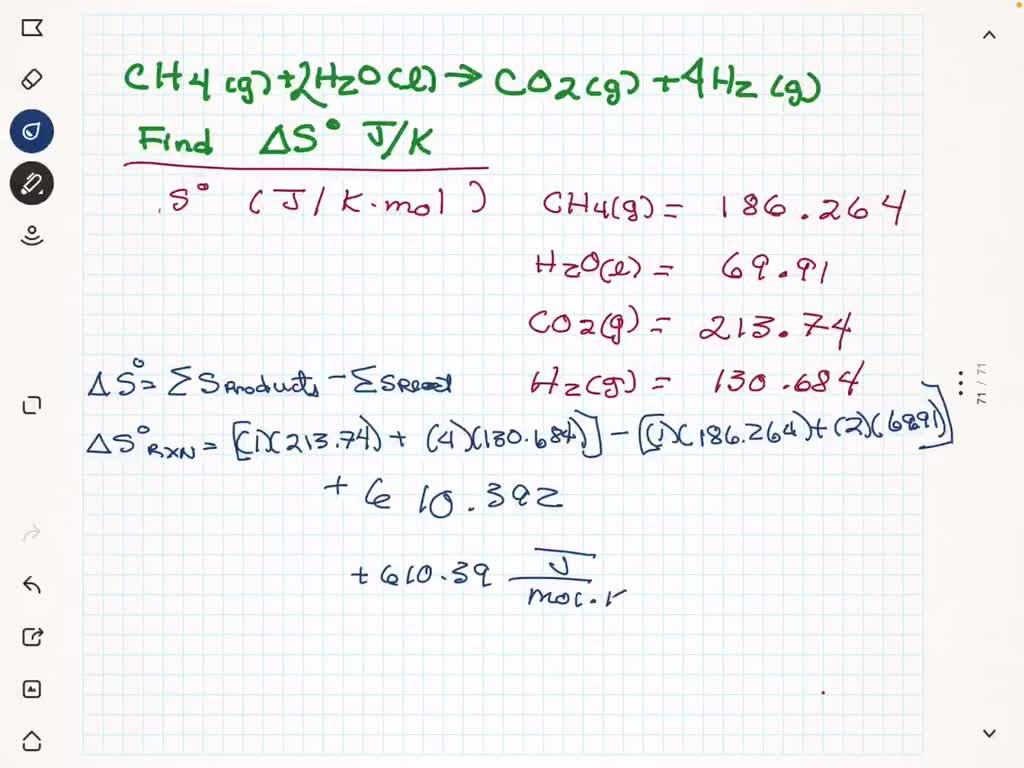 CH4(g)+2H2O(l)→CO2(g)+4H2(g)
Find ΔS° J/K
S° (J/K·mol)
CH4(g)= 186.264
H2O(l)= 69.91
CO2(g)= 213.74
H2(g)= 130.684
ΔS°= ΣSProducts-ΣSReact
ΔS°RXN=[(1)(213.74)+(4)(130.684)]-[(1)(186.264)+(2)(6991)]
+610.392
+610.39 J/mol·K
71 / 71